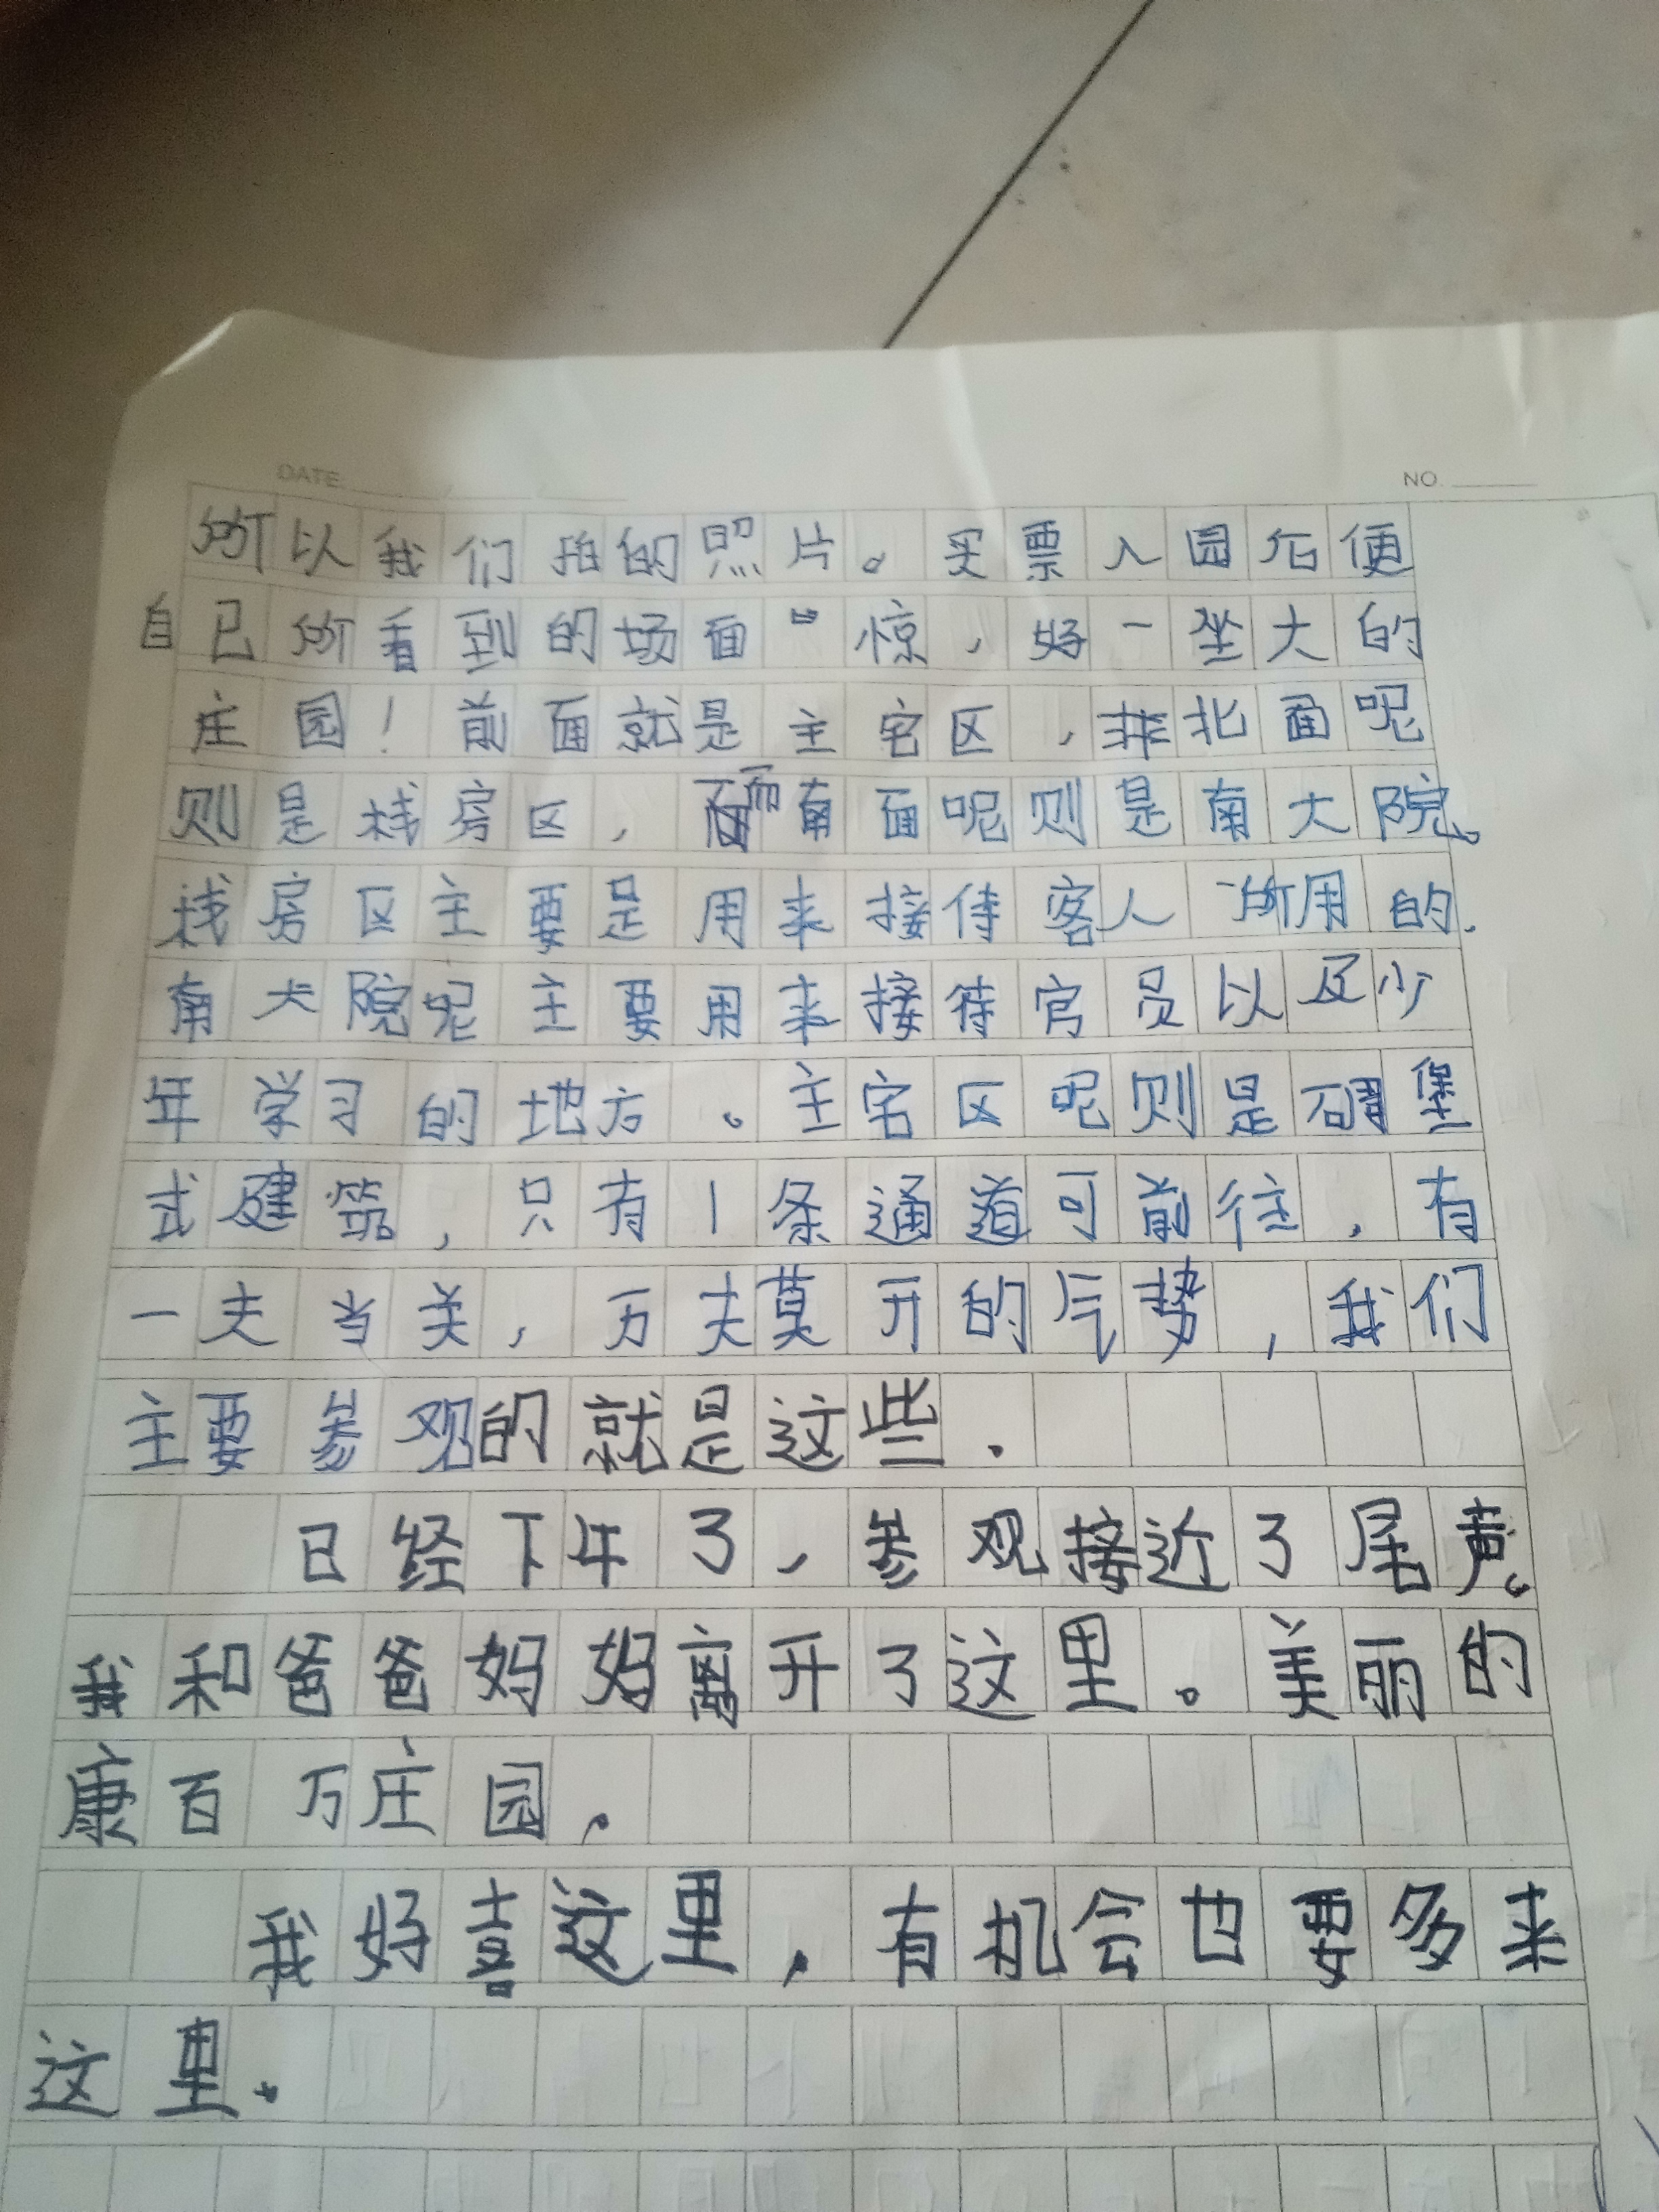 DATE
NO.
所以我们拍的照片。买票入园后便
自己所看到的场面吓惊，好一坐大的
庄园！前面就是主宅区，北面呢
则是栈房区，而南面呢则是南大院。
栈房区主要是用来接待客人所用的.
南大院呢主要用来接待官员以及少
年学习的地方。主宅区呢则是碉堡
式建筑，只有1条通道可前往，有
一夫当关，万夫莫开的气势，我们
主要参观的就是这些.
已经下午了、参观接近了尾声。
我和爸爸妈妈离开了这里。美丽的
康百万庄园.
我好喜这里，有机会也要多来
这里.